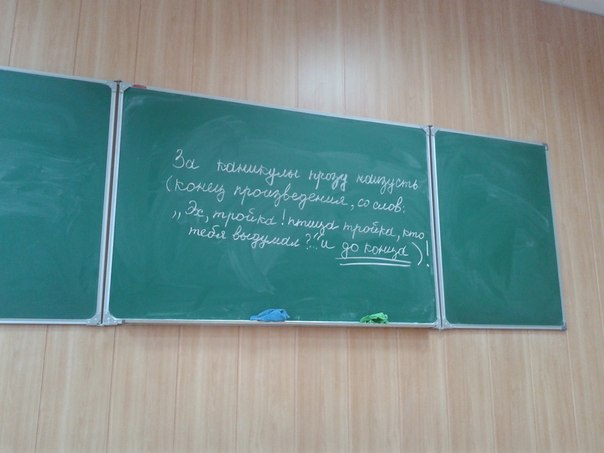 За каникулы прозу наизусть
(конец произведения, со слов:
„Эх, тройка! птица тройка, кто
тебя выдумал?..." и до конца)!